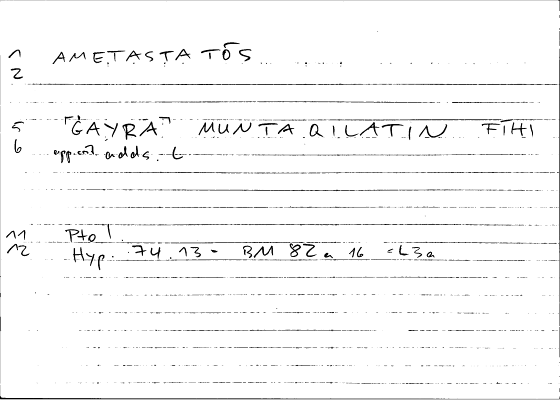 1 AMETASTATŌS
2
5 "ĠAYRA" MUNTAQILATIN FĪHI
6 app.crit. adds L
11 Ptol
12 Hyp. 74.13 = BM 82a 16 = L3a